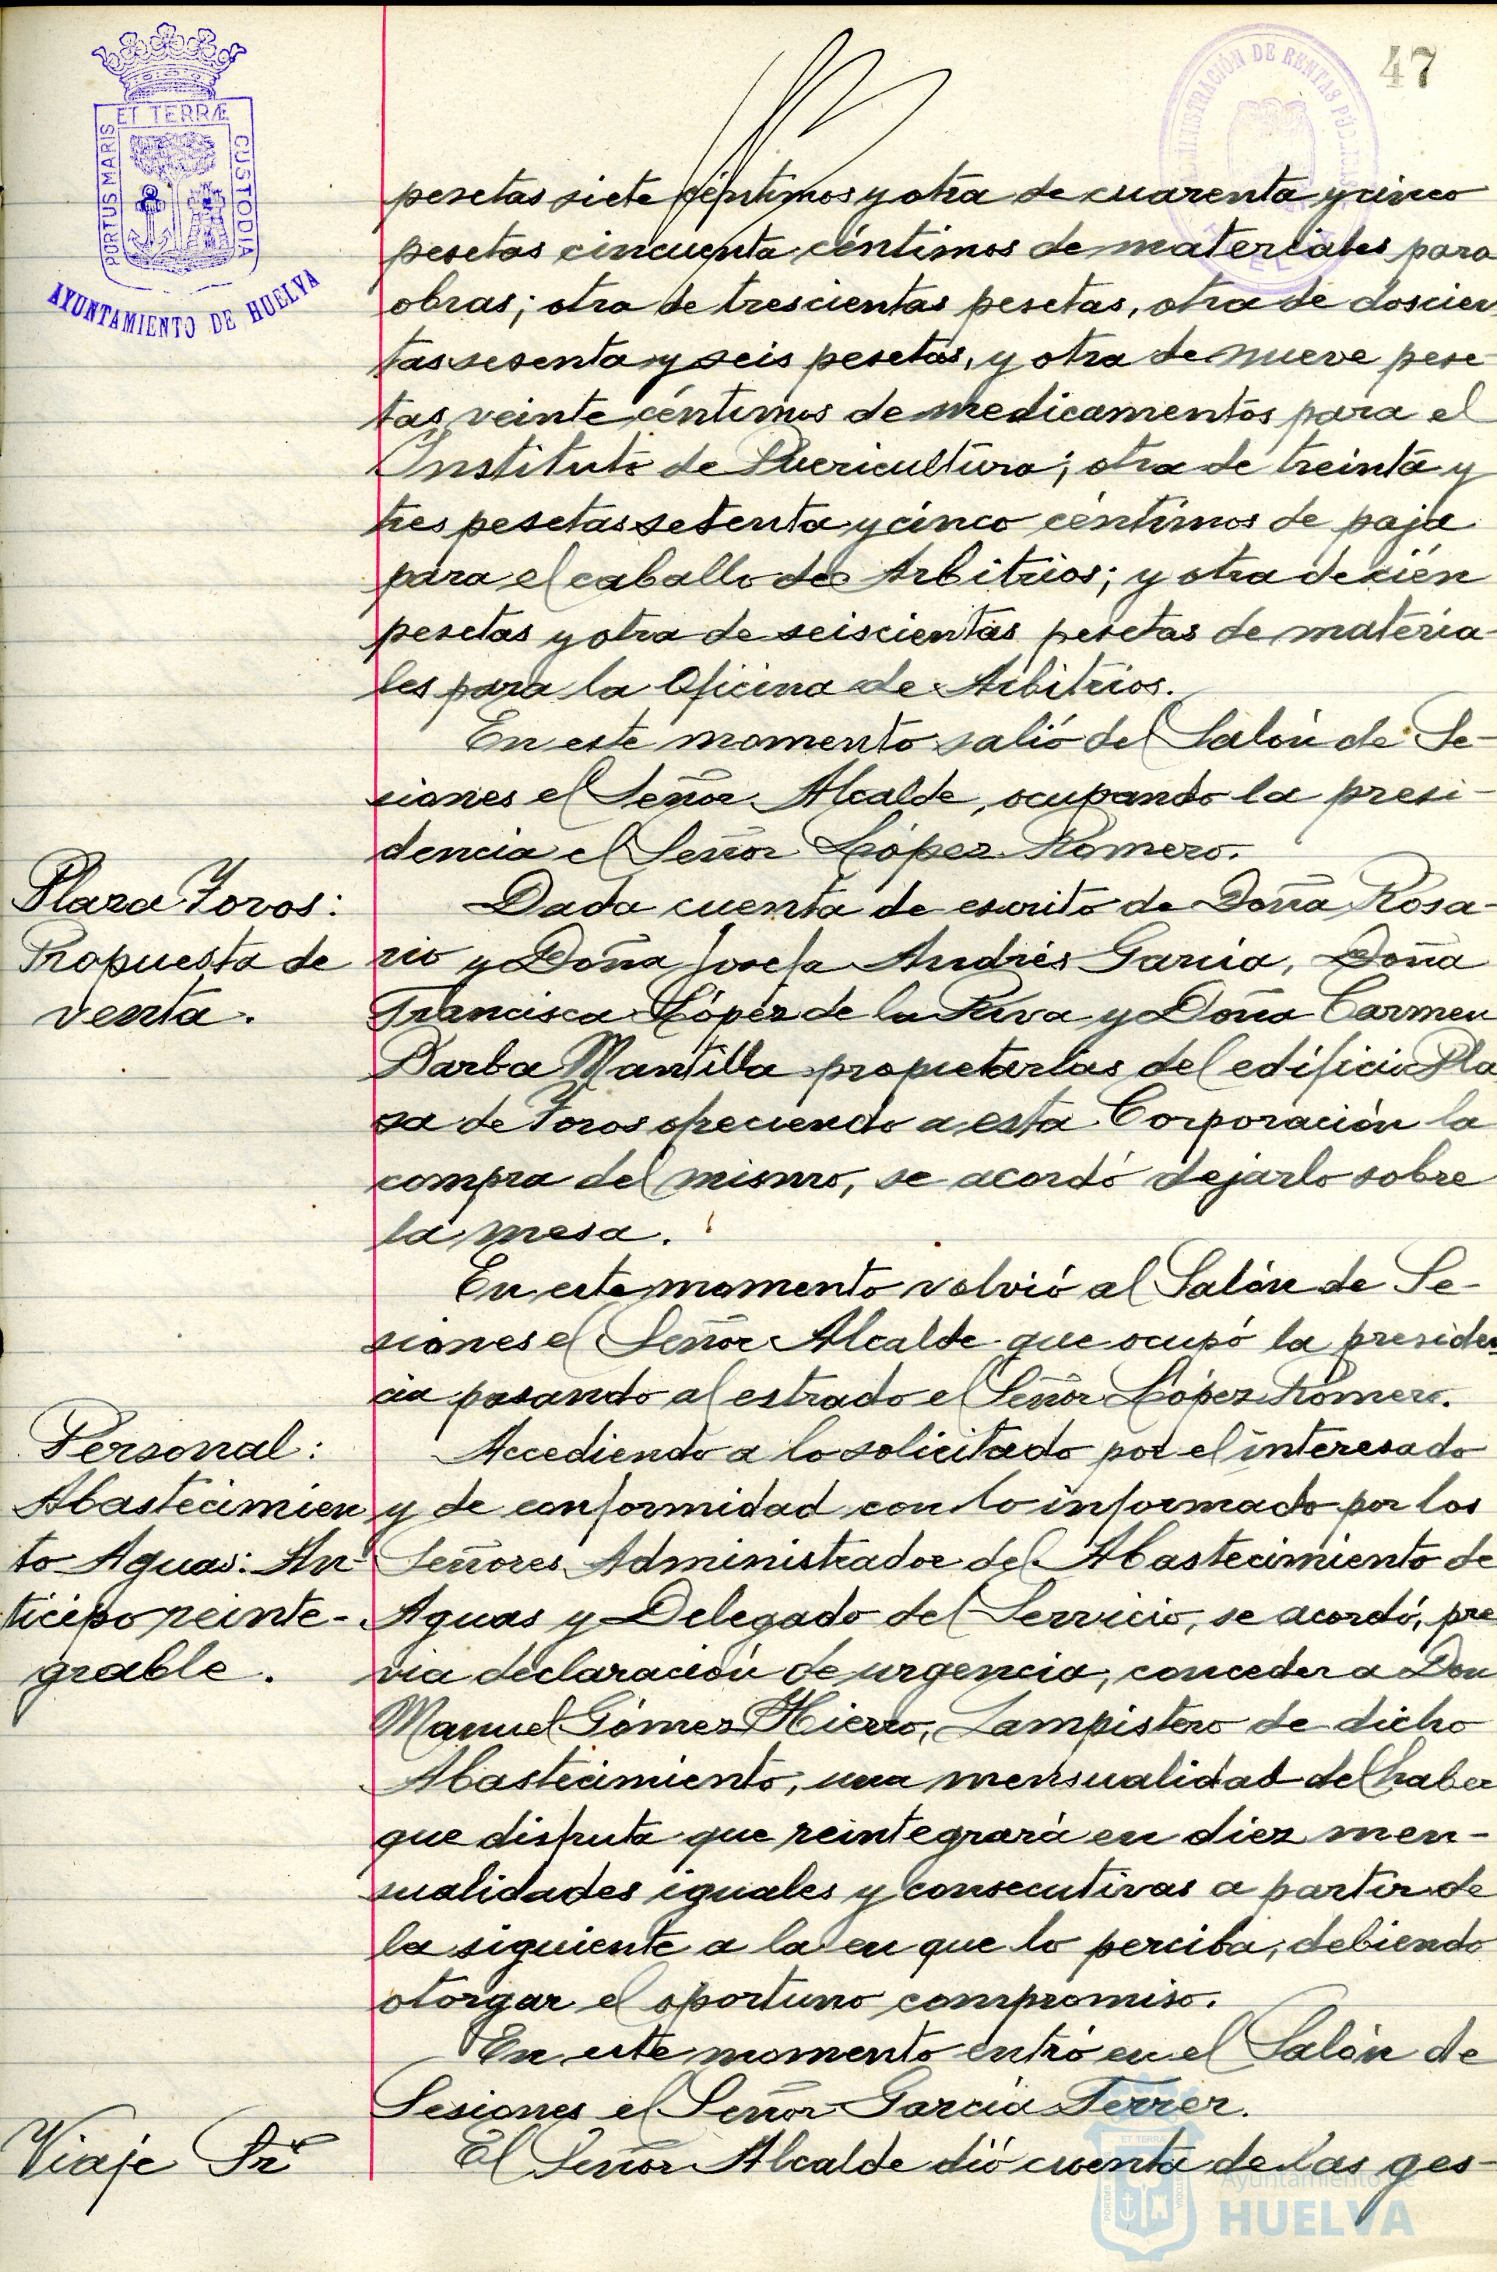 ET TERRÆ
PORTUS MARIS
CUSTODIA
AYUNTAMIENTO DE HUELVA
ADMINISTRACIÓN DE RENTAS PÚBLICAS
47
pesetas siete céntimos y otra de cuarenta y cinco
pesetas cincuenta céntimos de materiales para
obras; otra de trescientas pesetas, otra de doscien
tas sesenta y seis pesetas, y otra de nueve pese-
tas veinte céntimos de medicamentos para el
Instituto de Puericultura; otra de treinta y
tres pesetas setenta y cinco céntimos de paja
para el caballo de Arbitrios; y otra de cien
pesetas y otra de seiscientas pesetas de materia-
les para la Oficina de Arbitrios.
En este momento salió del Salón de Se-
siones el Señor Alcalde, ocupando la presi-
dencia el Señor López Romero.
Plaza Toros:
Propuesta de
venta.
Dada cuenta de escrito de Doña Rosa-
rio y Doña Josefa Andrés García, Doña
Francisca López de la Riva y Doña Carmen
Barba Mantilla propietarias del edificio Pla
za de Toros ofreciendo a esta Corporación la
compra del mismo, se acordó dejarlo sobre
la mesa.
En este momento volvió al Salón de Se-
siones el Señor Alcalde que ocupó la presiden
cia pasando al estrado el Señor López Romero.
Personal:
Abastecimien
to Aguas: An-
ticipo reinte-
grable.
Accediendo a lo solicitado por el interesado
y de conformidad con lo informado por los
Señores Administrador del Abastecimiento de
Aguas y Delegado del Servicio, se acordó, pre
via declaración de urgencia, conceder a Don
Manuel Gómez Hierro, Lampistero de dicho
Abastecimiento, una mensualidad del haber
que disfruta que reintegrará en diez men-
sualidades iguales y consecutivas a partir de
la siguiente a la en que lo perciba, debiendo
otorgar el oportuno compromiso.
En este momento entró en el Salón de
Sesiones el Señor García Ferrer.
Viaje Sr
El Señor Alcalde dió cuenta de las ges-
Ayuntamiento de
HUELVA